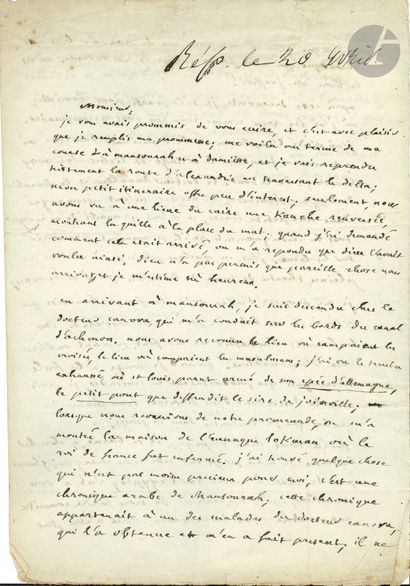 Rép. le 20 Avril
Monsieur,
je vous avais prommis de vous ecrire, et c'est avec plaisir
que je remplis ma prommesse; me voila au terme de ma
course à mansourah et à damiette, et je vais reprendre
tristement la route d'alexandrie en traversant le delta;
mon petit itineraire offre peu d'interet, seulement nous
avons vu à une lieue du caire une kanche renversée,
montrant la quille à la place du mat; quand j'ai demandé
comment cela etait arrivé, on m'a repondu que dieu l'avait
voulu ainsi; dieu n'a pas permis que pareille chose nous
arrivat, et je m'estime très heureux.
en arrivant à mansourah, je suis descendu chez le
docteur canova, qui m'a conduit sur les bords du canal
d'achmoun, nous avons reconnu le lieu où campaient les
croisés, le lieu où campaient les musulmans; j'ai vu le tertre
exhaussé où st louis parut armé de son epée d'allemagne,
le petit pont que deffendit le sire de joinville;
lorsque nous revenions de notre promenade, on m'a
montré la maison de l'eunuque lokman où le
roi de france fut enfermé. j'ai trouvé quelque chose
qui n'est pas moins precieux pour moi, c'est une
chronique arabe de Mansourah; cette chronique
appartenait à un des malades du docteur canova,
qui l'a obtenue et m'en a fait present; il ne